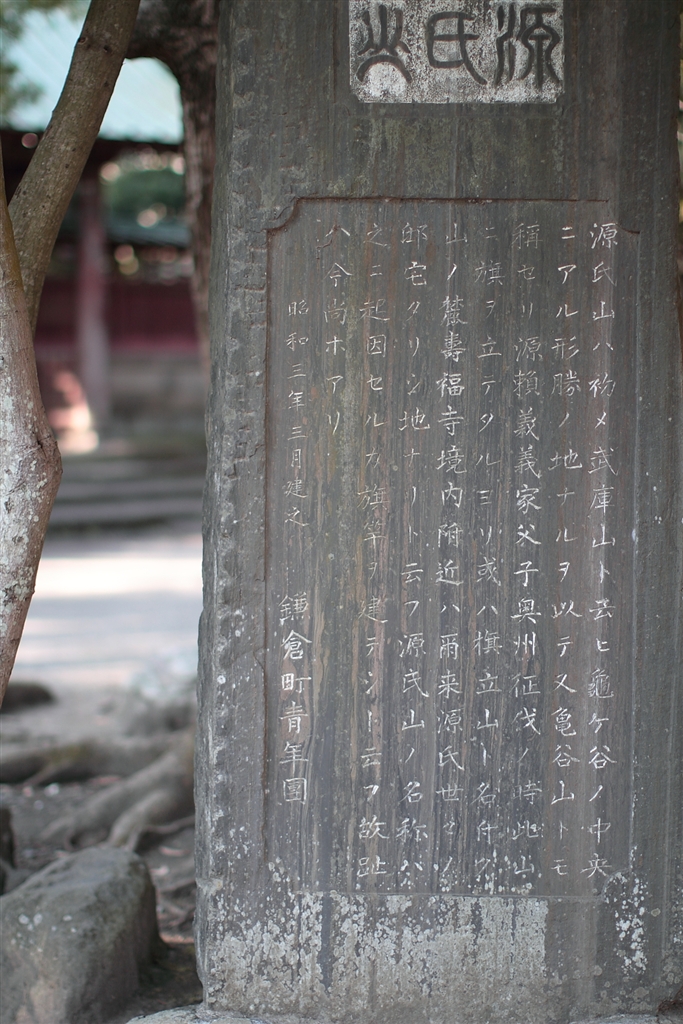 源氏山
源氏山ハ初メ武庫山ト云ヒ亀ケ谷ノ中央
ニアル形勝ノ地ナルヲ以テ又亀谷山トモ
稱セリ源頼義義家父子奥州征伐ノ時此山
ニ旗ヲ立テタルヨリ或ハ旗立山ト名付ク
山ノ麓壽福寺境内附近ハ爾来源氏世々ノ
邸宅タリシ地ナリト云フ源氏山ノ名称ハ
之ニ起因セルカ旗竿ヲ建テシト云フ故趾
ハ今尚ホアリ
昭和三年三月建之 鎌倉町青年團